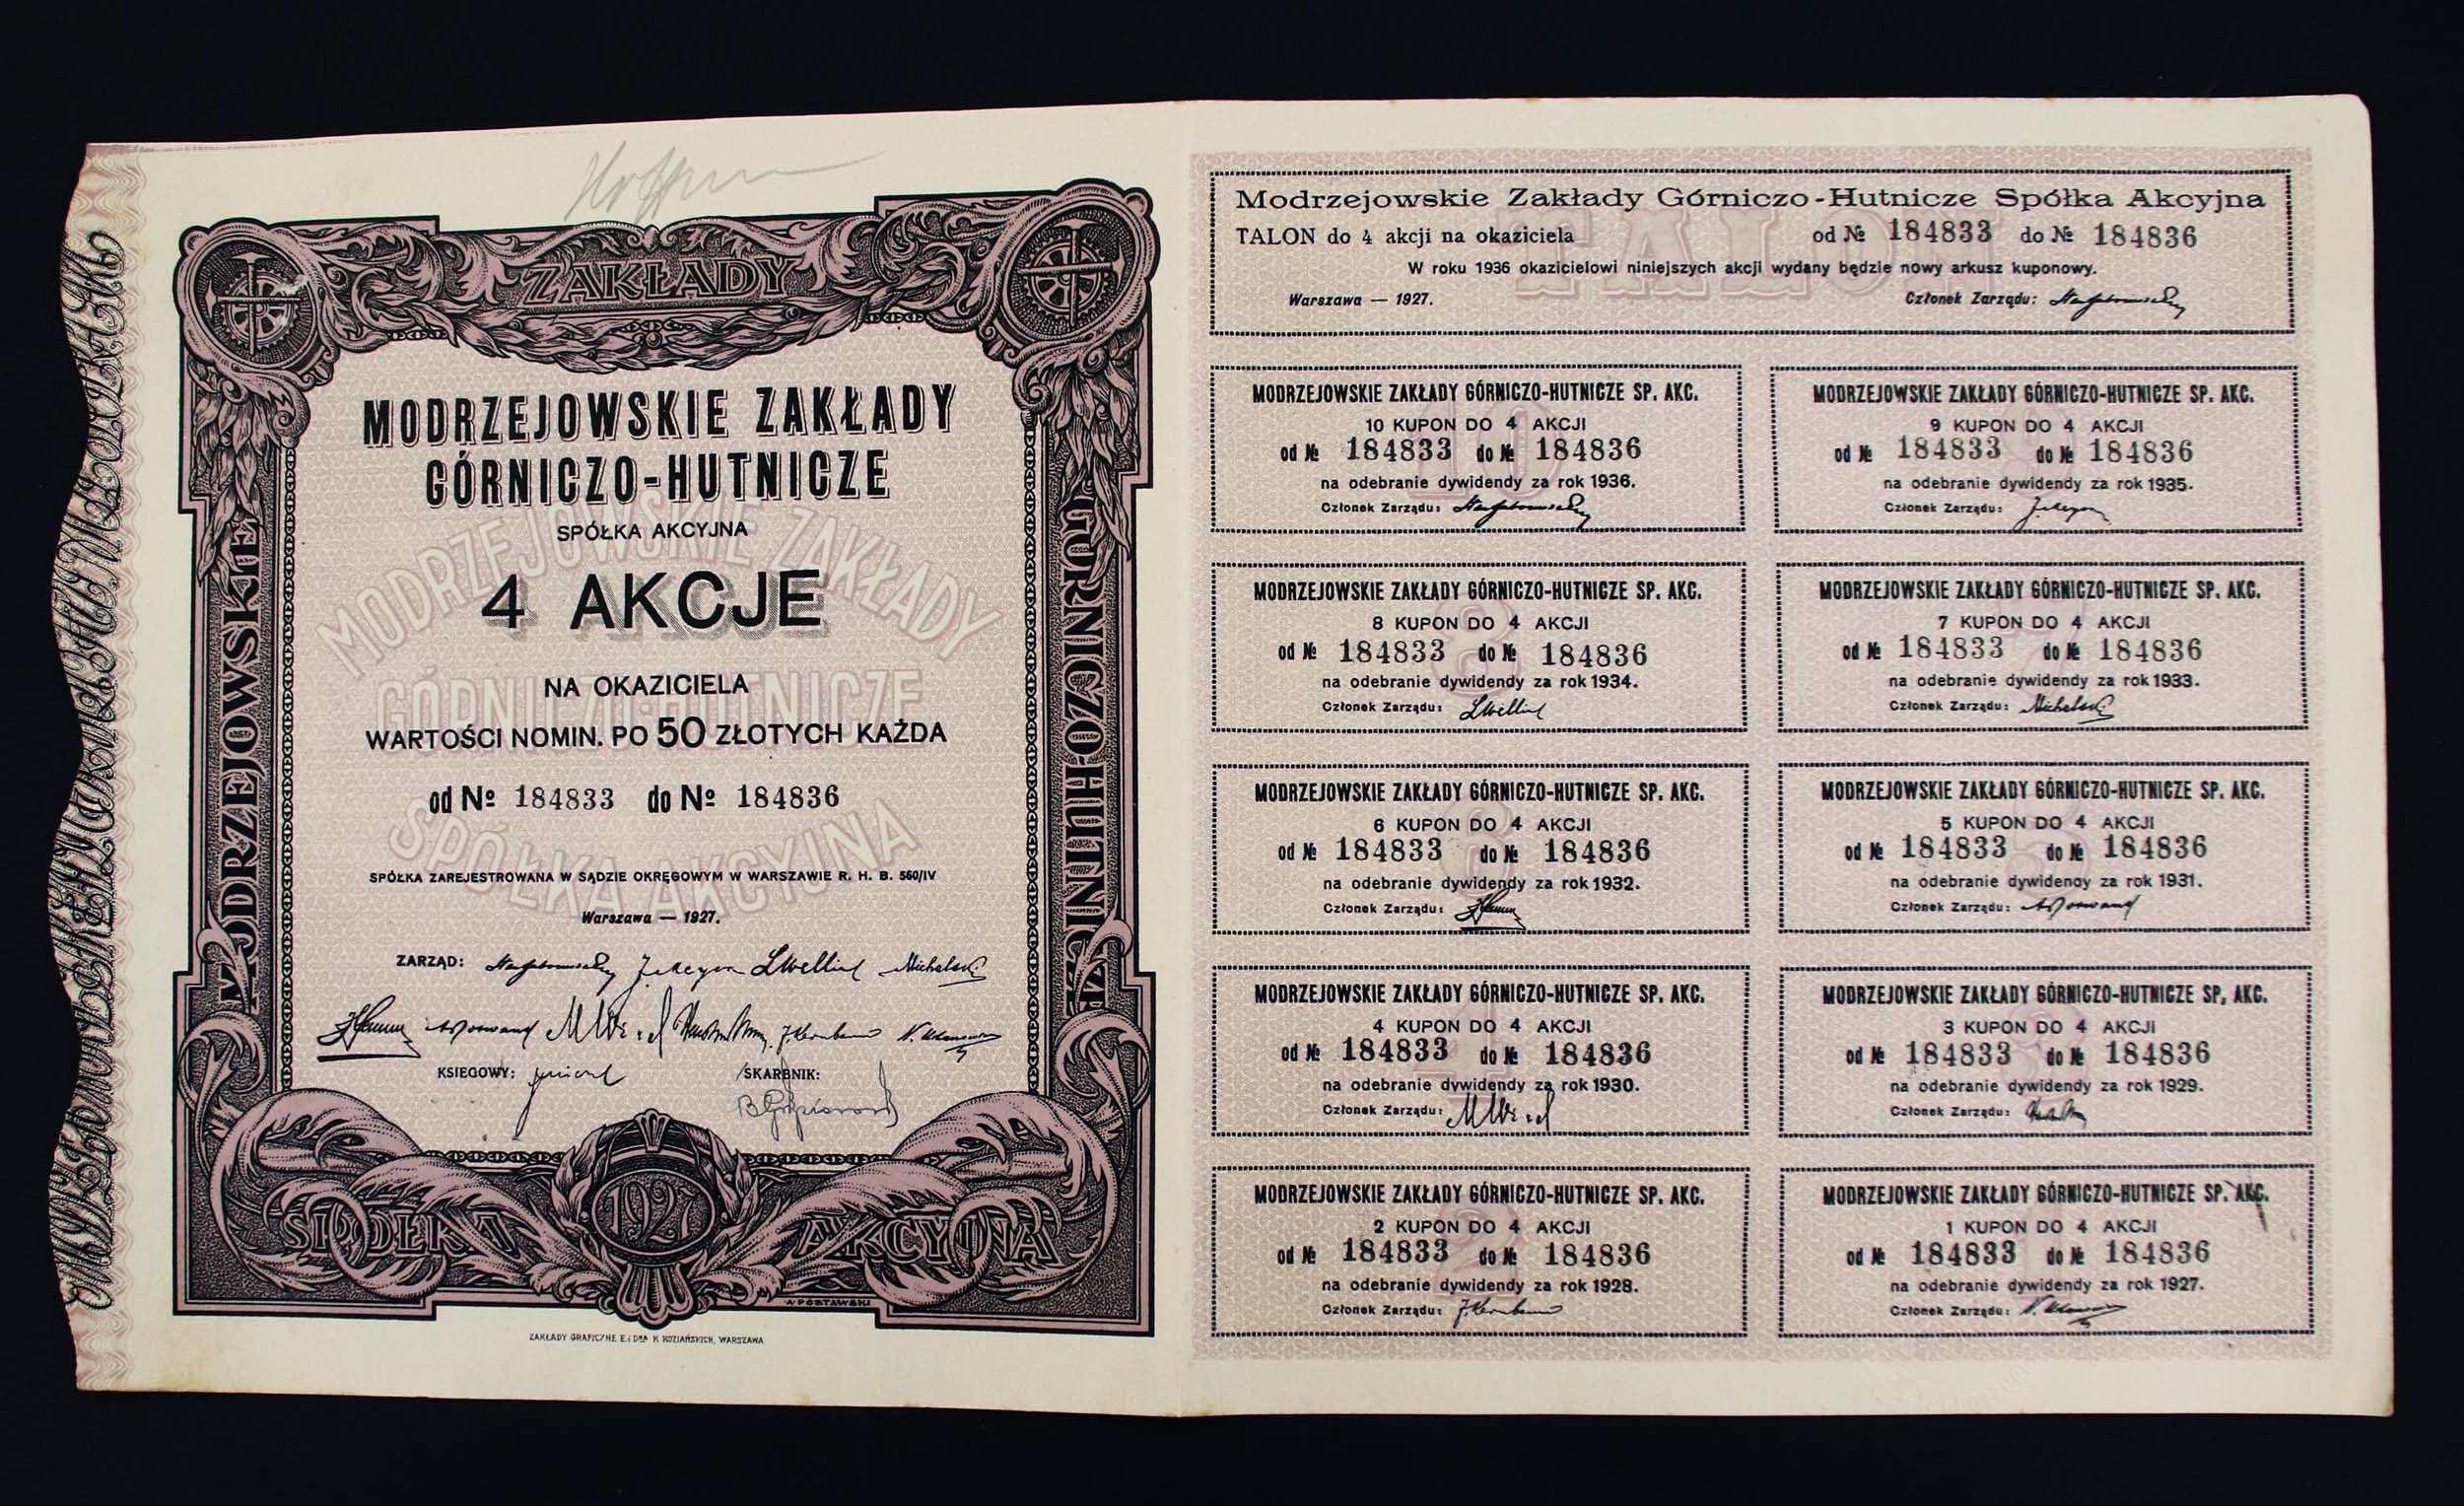 ZAKŁADY
MODRZEJOWSKIE
GÓRNICZO-HUTNICZE
MODRZEJOWSKIE ZAKŁADY
GÓRNICZO-HUTNICZE
SPÓŁKA AKCYJNA
4 AKCJE
NA OKAZICIELA
WARTOŚCI NOMIN. PO 50 ZŁOTYCH KAŻDA
od № 184833 do № 184836
SPÓŁKA ZAREJESTROWANA W SĄDZIE OKRĘGOWYM W WARSZAWIE R. H. B. 560/IV
Warszawa — 1927.
ZARZĄD:
KSIĘGOWY: SKARBNIK:
MODRZEJOWSKIE ZAKŁADY
GÓRNICZO-HUTNICZE
SPÓŁKA AKCYJNA
SPÓŁKA 1927 AKCYJNA
A. PÓŁTAWSKI
ZAKŁADY GRAFICZNE E. i Dra K. KOZIAŃSKICH, WARSZAWA
TALON
Modrzejowskie Zakłady Górniczo-Hutnicze Spółka Akcyjna
TALON do 4 akcji na okaziciela od № 184833 do № 184836
W roku 1936 okazicielowi niniejszych akcji wydany będzie nowy arkusz kuponowy.
Warszawa — 1927. Członek Zarządu:
MODRZEJOWSKIE ZAKŁADY GÓRNICZO-HUTNICZE SP. AKC.
10 KUPON DO 4 AKCJI
od № 184833 do № 184836
na odebranie dywidendy za rok 1936.
Członek Zarządu:
MODRZEJOWSKIE ZAKŁADY GÓRNICZO-HUTNICZE SP. AKC.
9 KUPON DO 4 AKCJI
od № 184833 do № 184836
na odebranie dywidendy za rok 1935.
Członek Zarządu:
MODRZEJOWSKIE ZAKŁADY GÓRNICZO-HUTNICZE SP. AKC.
8 KUPON DO 4 AKCJI
od № 184833 do № 184836
na odebranie dywidendy za rok 1934.
Członek Zarządu:
MODRZEJOWSKIE ZAKŁADY GÓRNICZO-HUTNICZE SP. AKC.
7 KUPON DO 4 AKCJI
od № 184833 do № 184836
na odebranie dywidendy za rok 1933.
Członek Zarządu:
MODRZEJOWSKIE ZAKŁADY GÓRNICZO-HUTNICZE SP. AKC.
6 KUPON DO 4 AKCJI
od № 184833 do № 184836
na odebranie dywidendy za rok 1932.
Członek Zarządu:
MODRZEJOWSKIE ZAKŁADY GÓRNICZO-HUTNICZE SP. AKC.
5 KUPON DO 4 AKCJI
od № 184833 do № 184836
na odebranie dywidendy za rok 1931.
Członek Zarządu:
MODRZEJOWSKIE ZAKŁADY GÓRNICZO-HUTNICZE SP. AKC.
4 KUPON DO 4 AKCJI
od № 184833 do № 184836
na odebranie dywidendy za rok 1930.
Członek Zarządu:
MODRZEJOWSKIE ZAKŁADY GÓRNICZO-HUTNICZE SP, AKC.
3 KUPON DO 4 AKCJI
od № 184833 do № 184836
na odebranie dywidendy za rok 1929.
Członek Zarządu:
MODRZEJOWSKIE ZAKŁADY GÓRNICZO-HUTNICZE SP. AKC.
2 KUPON DO 4 AKCJI
od № 184833 do № 184836
na odebranie dywidendy za rok 1928.
Członek Zarządu:
MODRZEJOWSKIE ZAKŁADY GÓRNICZO-HUTNICZE SP. AKC.
1 KUPON DO 4 AKCJI
od № 184833 do № 184836
na odebranie dywidendy za rok 1927.
Członek Zarządu: